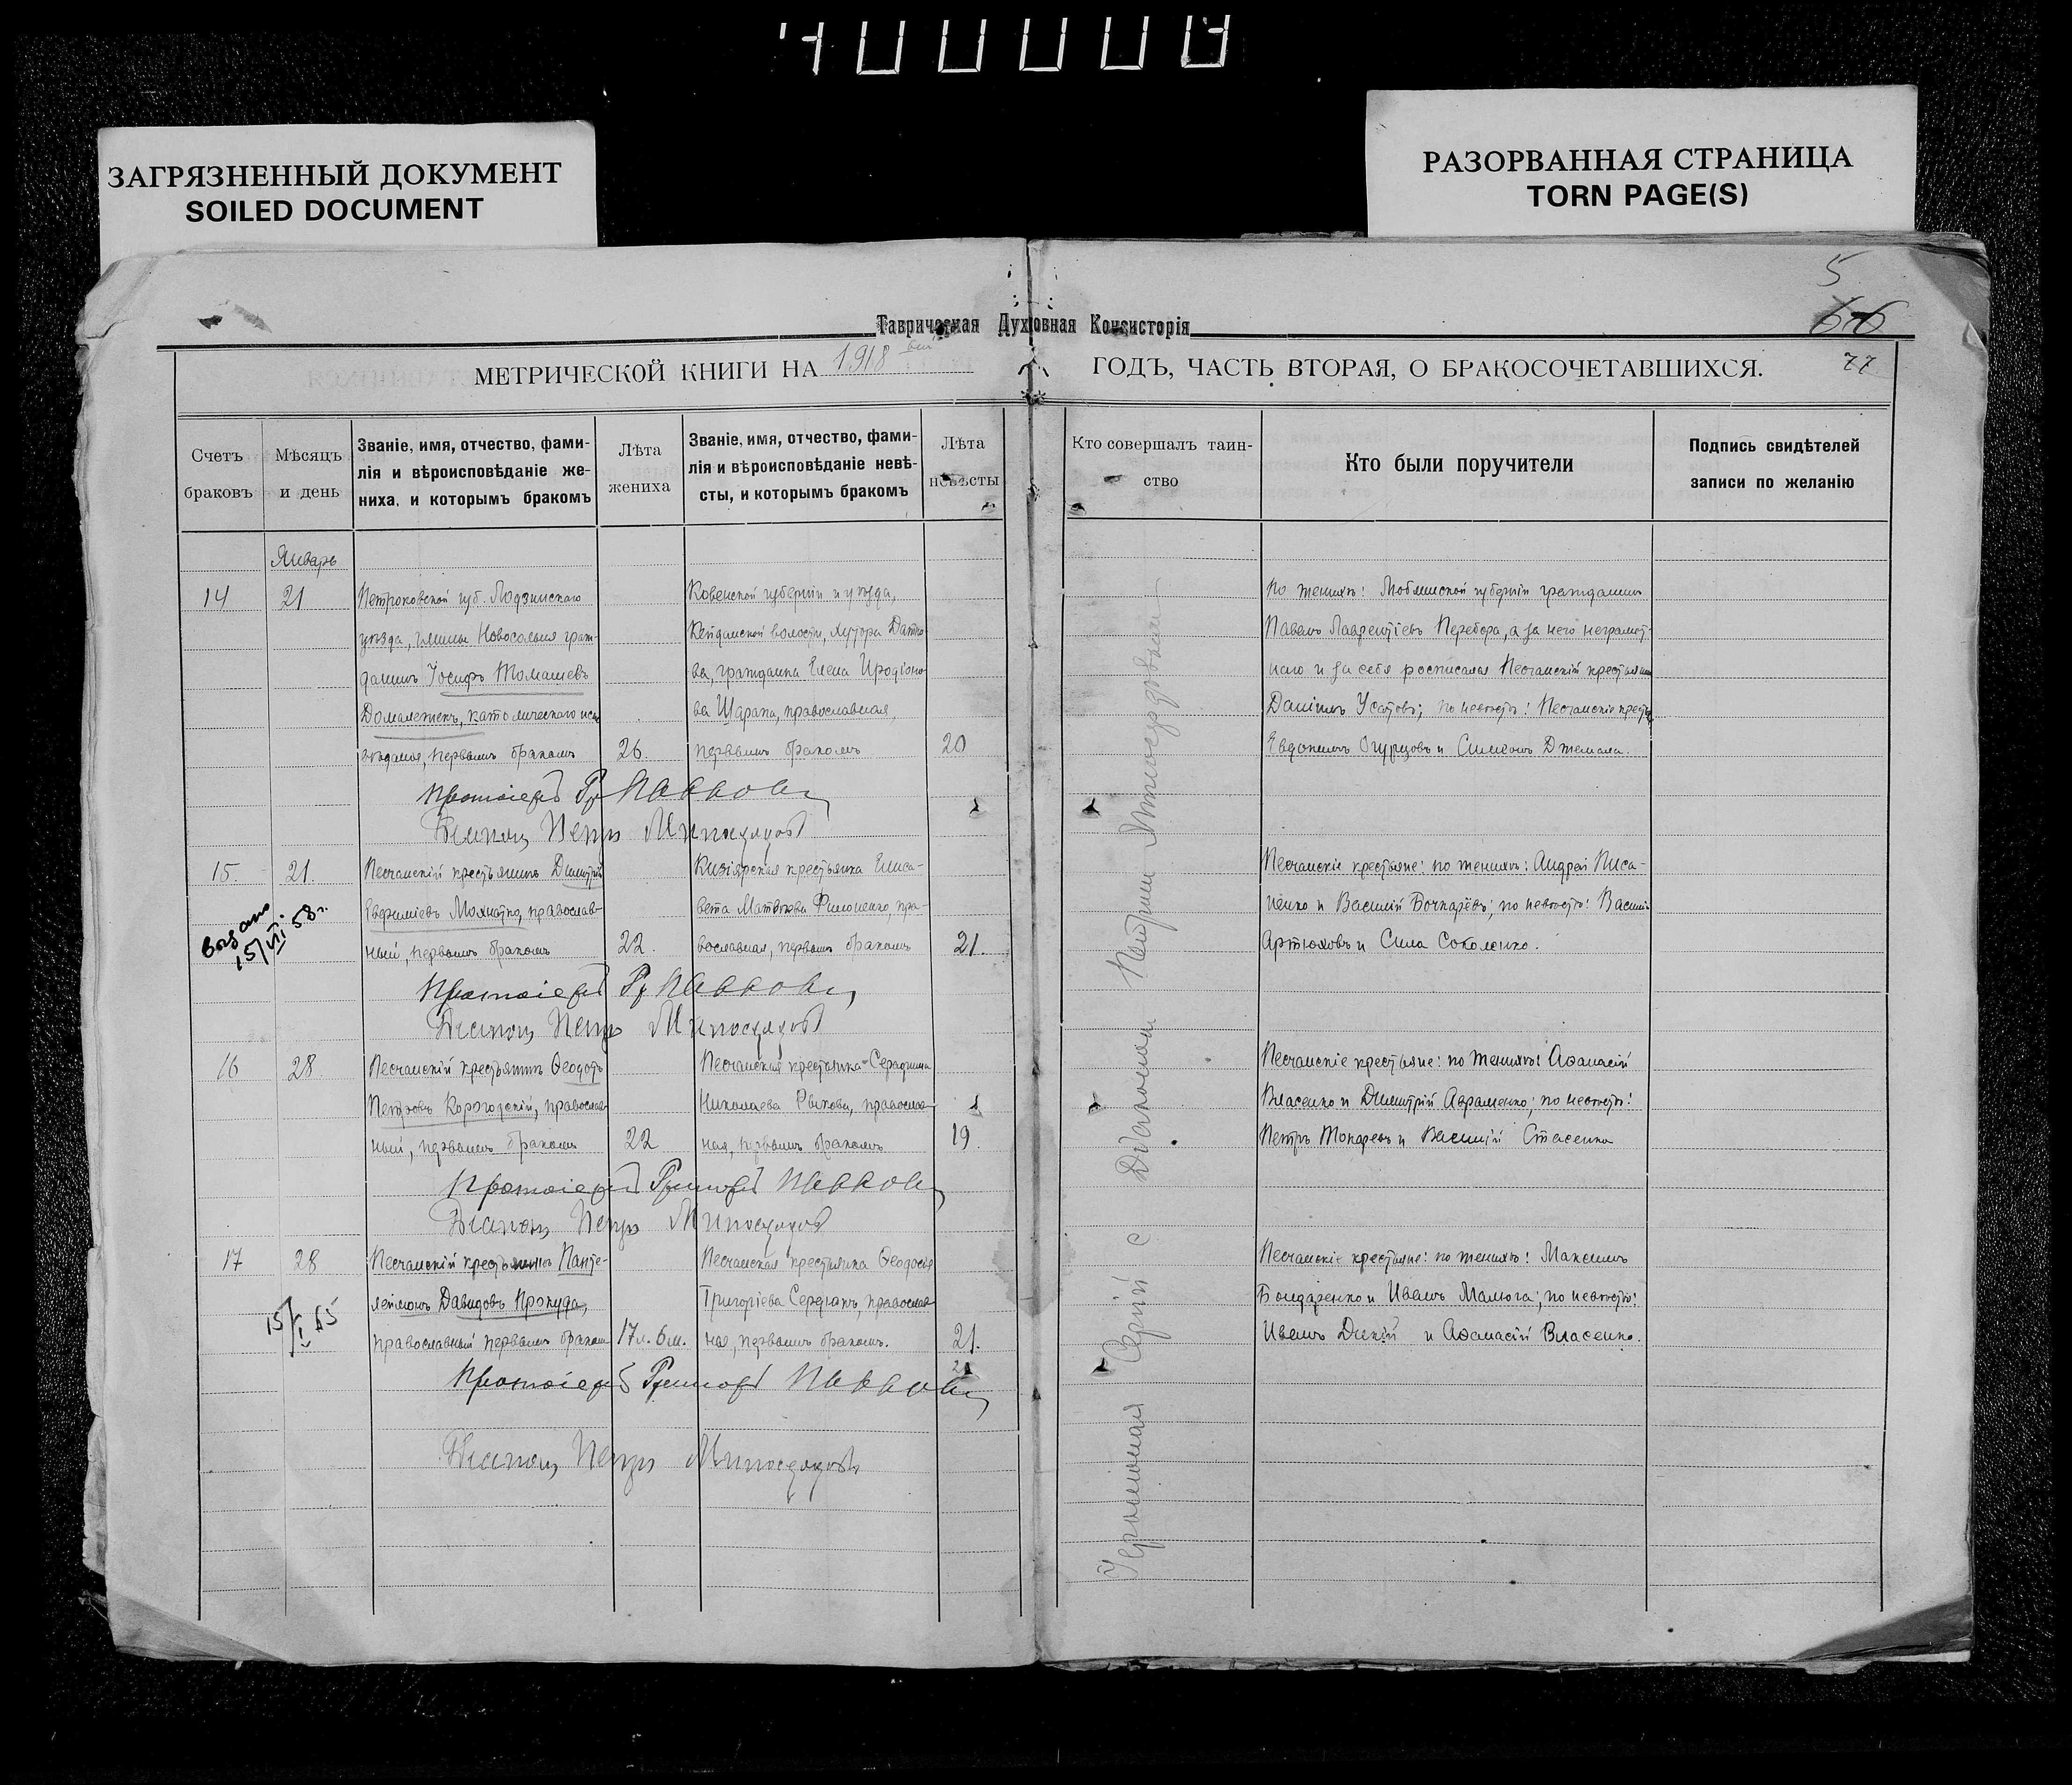 ЗАГРЯЗНЕННЫЙ ДОКУМЕНТ
SOILED DOCUMENT
РАЗОРВАННАЯ СТРАНИЦА
TORN PAGE(S)
5
66
77
Таврическая Духовная Консисторія
МЕТРИЧЕСКОЙ КНИГИ НА 1918 ГОДЪ, ЧАСТЬ ВТОРАЯ, О БРАКОСОЧЕТАВШИХСЯ.
Счетъ браковъ
Мѣсяцъ и день
Званіе, имя, отчество, фами-
лія и вѣроисповѣданіе же-
ниха, и которымъ бракомъ
Лѣта жениха
Званіе, имя, отчество, фами-
лія и вѣроисповѣданіе невѣ-
сты, и которымъ бракомъ
Лѣта невѣсты
Кто совершалъ таин-
ство
Кто были поручители
Подпись свидѣтелей
записи по желанію
Январь
14
21
Петроковской губ. Лодзинскаго
уѣзда, гмины Новосольня граж-
данинъ Іосифъ Томашевъ
католическаго испо
вѣданія, первымъ бракомъ
26.
Ковенской губерніи и уѣзда,
Кейданской волости, хутора
гражданка Елена Иродіоно-
ва Шарапа, православная,
первымъ бракомъ
20
По женихѣ: Люблинской губерніи гражданинъ
Павелъ Лаврентіевъ Перебора, а за него неграмот-
наго и за себя росписался Песчанскій крестьянинъ
Даніилъ Усатовъ; по невѣстѣ: Песчанскіе крестьяне
Евдокимъ Огурцовъ и Симеонъ Джемала.
Протоіерей Гр
Діаконъ Петръ Милосердовъ
15.
21.
Песчанскій крестьянинъ Димитрій
Евфиміевъ Мохнатко, православ-
ный, первымъ бракомъ
22.
Кизіярская крестьянка Елиса-
вета Матвѣева Филоненко, пра-
вославная, первымъ бракомъ
21.
Песчанскіе крестьяне: по женихѣ: Андрей Писа-
ренко и Василій Бочкарёвъ; по невѣстѣ: Василій
Артюховъ и Сила Соколенко.
выдано
15/VII 58 г.
Протоіерей Гр
Діаконъ Петръ Милосердовъ
16
28
Песчанскій крестьянинъ Ѳеодотъ
Петровъ Корогодскій, православ-
ный, первымъ бракомъ
22
Песчанская крестьянка Серафима
Николаева Рыкова, православ-
ная, первымъ бракомъ
19.
Песчанскіе крестьяне: по женихѣ: Аѳанасій
Власенко и Димитрій Авраменко; по невѣстѣ:
Петръ Токаревъ и Василій Стасенко
Протоіерей Григорій
Діаконъ Петръ Милосердовъ
17
28
Песчанскій крестьянинъ Панте-
леймонъ Давидовъ Прокуда,
православный первымъ бракомъ
17 л. 6 м.
Песчанская крестьянка Ѳеодосія
Григоріева Сердюкъ, православ-
ная, первымъ бракомъ.
21.
21
Песчанскіе крестьяне: по женихѣ: Максимъ
Бондаренко и Иванъ Малюга; по невѣстѣ:
Иванъ Дикій и Аѳанасій Власенко.
15/I 65
Протоіерей Григорій
Діаконъ Петръ Милосердовъ
Іеромонахъ Сергій с Діакономъ Петромъ Милосердовымъ